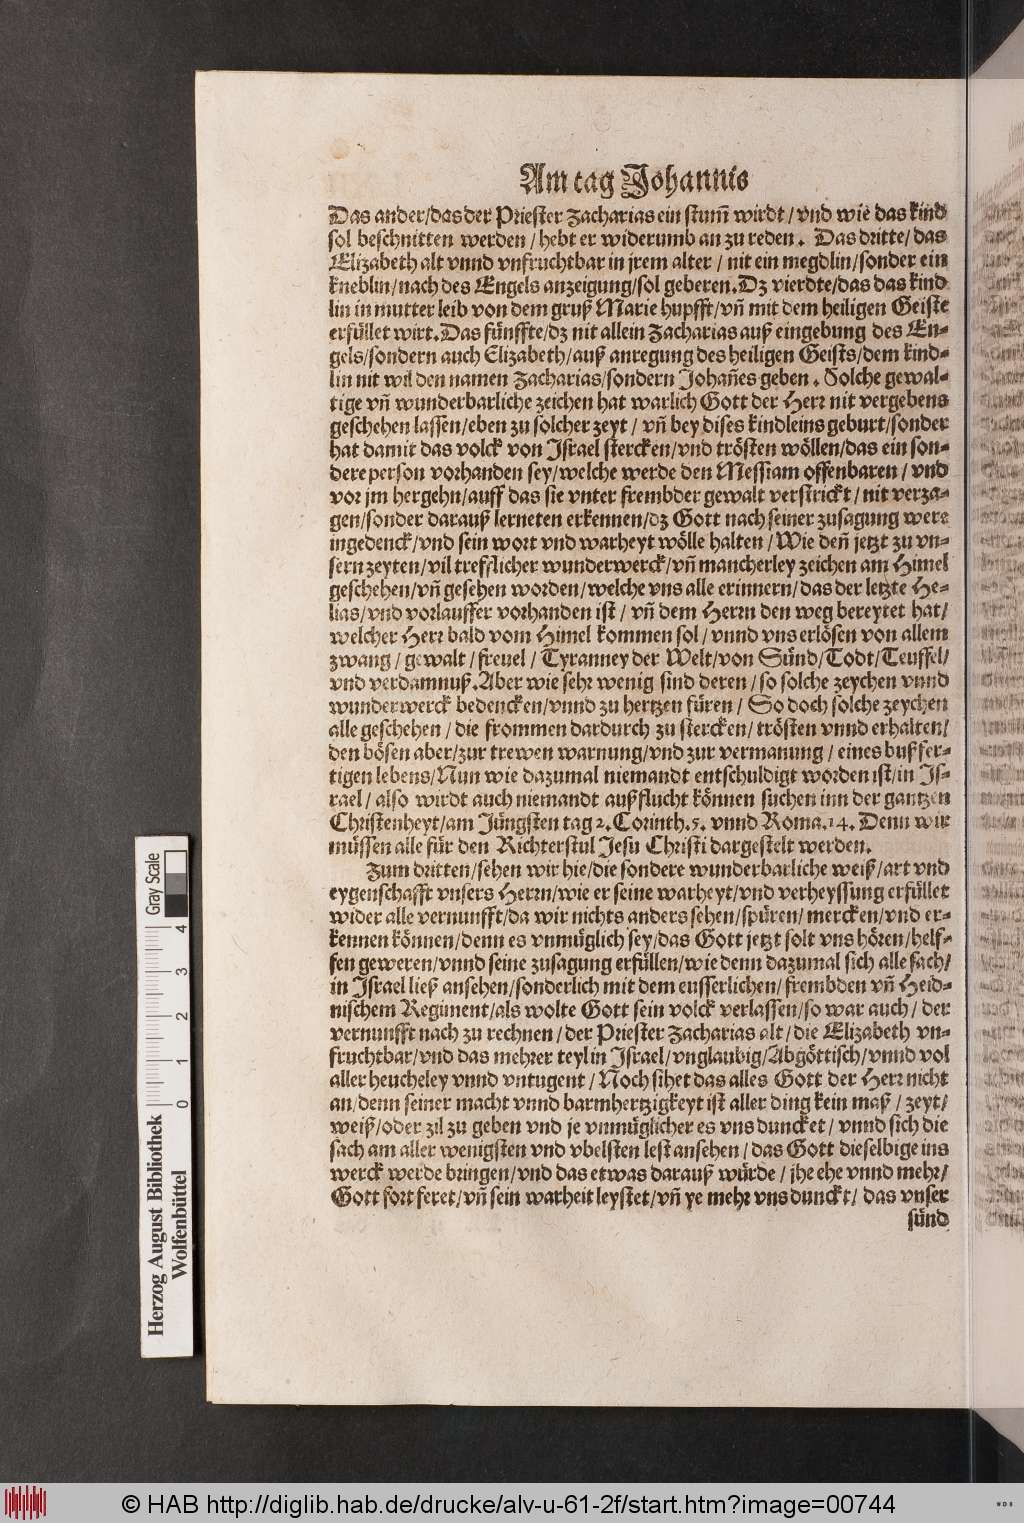 Am tag Johannis
Das ander/das der Priester Zacharias ein stum̃ wirdt/vnd wie das kind
sol beschnitten werden/hebt er widerumb an zu reden. Das dritte/das
Elizabeth alt vnnd vnfruchtbar in jrem alter/nit ein megdlin/sonder ein
kneblin/nach des Engels anzeigung/sol geberen. Dz vierdte/das das kind
lin in mutter leib von dem gruß Marie hupfft/vñ mit dem heiligen Geiste
erfüllet wirt. Das fünffte/dz nit allein Zacharias auß eingebung des En-
gels/sondern auch Elizabeth/auß anregung des heiligen Geists/dem kind-
lin nit wil den namen Zacharias/sondern Johañes geben. Solche gewal-
tige vñ wunderbarliche zeichen hat warlich Gott der Herr nit vergebens
geschehen lassen/eben zu solcher zeyt/vñ bey dises kindleins geburt/sonder
hat damit das volck von Israel stercken/vnd trösten wöllen/das ein son-
dere person vorhanden sey/welche werde den Messiam offenbaren/vnd
vor jm hergehn/auff das sie vnter frembder gewalt verstrickt/nit verza-
gen/sonder darauß lerneten erkennen/dz Gott nach seiner zusagung were
ingedenck/vnd sein wort vnd warheyt wölle halten/Wie deñ jetzt zu vn-
sern zeyten/vil trefflicher wunderwerck/vñ mancherley zeichen am Himel
geschehen/vñ gesehen worden/welche vns alle erinnern/das der letzte He-
lias/vnd vorlauffer vorhanden ist/vñ dem Herrn den weg bereytet hat/
welcher Herr bald vom Himel kommen sol/vnnd vns erlösen von allem
zwang/gewalt/freuel/Tyranney der Welt/von Sünd/Todt/Teuffel/
vnd verdamnuß. Aber wie sehr wenig sind deren/so solche zeychen vnnd
wunderwerck bedencken/vnnd zu hertzen füren/So doch solche zeychen
alle geschehen/die frommen dardurch zu stercken/trösten vnnd erhalten/
den bösen aber/zur trewen warnung/vnd zur vermanung/eines bußfer-
tigen lebens/Nun wie dazumal niemandt entschuldigt worden ist/in Is-
rael/also wirdt auch niemandt außflucht können suchen inn der gantzen
Christenheyt/am Jüngsten tag 2. Corinth. 5. vnnd Roma. 14. Denn wir
müssen alle für den Richterstul Jesu Christi dargestelt werden.
Zum dritten/sehen wir hie/die sondere wunderbarliche weiß/art vnd
eygenschafft vnsers Herrn/wie er seine warheyt/vnd verheyssung erfüllet
wider alle vernunfft/da wir nichts anders sehen/spüren/mercken/vnd er-
kennen können/denn es vnmüglich sey/das Gott jetzt solt vns hören/helf-
fen geweren/vnnd seine zusagung erfüllen/wie denn dazumal sich alle sach/
in Israel ließ ansehen/sonderlich mit dem eusserlichen/frembden vñ Heid-
nischem Regiment/als wolte Gott sein volck verlassen/so war auch/der
vernunfft nach zu rechnen/der Priester Zacharias alt/die Elizabeth vn-
fruchtbar/vnd das mehrer teyl in Israel/vnglaubig/Abgöttisch/vnnd vol
aller heucheley vnnd vntugent/Noch sihet das alles Gott der Herr nicht
an/denn seiner macht vnnd barmhertzigkeyt ist aller ding kein maß/zeyt/
weiß/oder zil zu geben vnd je vnmüglicher es vns duncket/vnnd sich die
sach am aller wenigsten vnd vbelsten lest ansehen/das Gott dieselbige ins
werck werde bringen/vnd das etwas darauß würde/jhe ehe vnnd mehr/
Gott fort feret/vñ sein warheit leystet/vñ ye mehr vns dunckt/das vnser
sünd
Herzog August Bibliothek
Wolfenbüttel
0 1 2 3 4
Gray Scale
© HAB http://diglib.hab.de/drucke/alv-u-61-2f/start.htm?image=00744